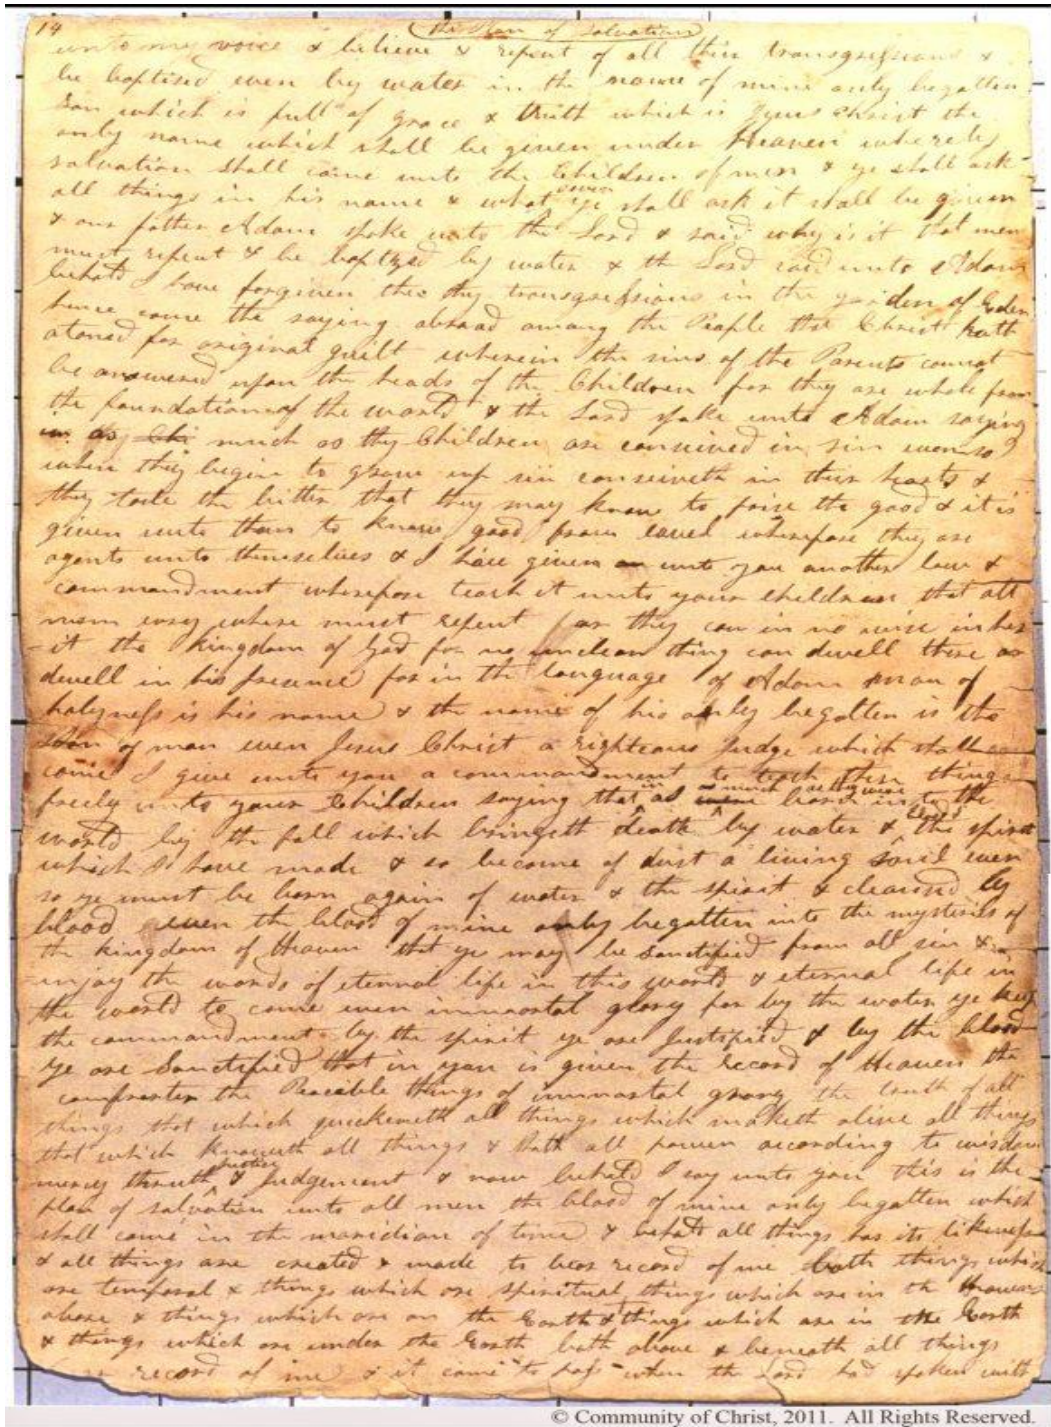 14 The Plan of Salvation
unto my voice & believe & repent of all thin transgressions &
be baptised even by water in the name of mine only begotten
Son which is full of grace & truth which is Jesus Christ the
only name which shall be given under Heaven whereby
salvation shall come unto the Children of men & ye shall ask
all things in his name & what soever ye shall ask it shall be given
& our father Adam spoke unto the Lord & said why is it that men
must repent & be baptized by water & th Lord said unto Adam
behold I have forgiven thee thy transgressions in the garden of Eden
hence came the saying abroad among the People that Christ hath
atoned for original guilt wherein the sins of the Parents cannot
be answered upon the heads of the Children for they are whole from
the foundation of the world & the Lord spake unto Adam saying
in as much as thy Children are conceived in sin even so
when they begin to grow up sin conceiveth in their hearts &
they taste the bitter that they may know to prise the good & it is
given unto them to know good from evel wherefore they are
agents unto themselves & I have given unto you another law &
commandment wherefore teach it unto your children that all
men evry where must repent for they can in no wise inher
it the kingdom of God for no unclean thing can dwell there or
dwell in his presence for in the language of Adam man of
holyness is his name & the name of his only begotten is the
Son of man even Jesus Christ a righteous Judge which shall
come I give unto you a commandment to teach these things
freely unto your Children saying that in as much as they were born in to the
world by the fall which bringeth death by water & blood & the spirit
which I have made & so become of dust a living Soul even
so ye must be born again of water & the spirit & cleansed by
blood even the blood of mine only begotten into the mysteries of
the kingdom of Heaven that ye may be Sanctified from all sin &
enjoy the words of eternal life in this world & eternal life in
the world to come even immortal glory for by the water ye keep
the commandment by the spirit ye are Justified & by the blood
ye are Sanctified that in you is given the record of Heaven the
comforter the Peacible things of immortal glory the truth of all
things that which quickeneth all things which maketh alive all things
that which knoweth all things & hath all power according to wisdom
mercy thruth justice & Judgement & now behold I say unto you this is the
plan of salvation unto all men the blood of mine only begotten which
shall come in the maridian of time & behold all things has its likeness
& all things are created & made to bear record of me both things which
are temporal & things which are spiritual things which are in the Heavens
above & things which are on the Earth & things which are in the Earth
& things which are under the Earth both above & beneath all things
record of me & it came to pass when the Lord had spoken with
© Community of Christ, 2011. All Rights Reserved.